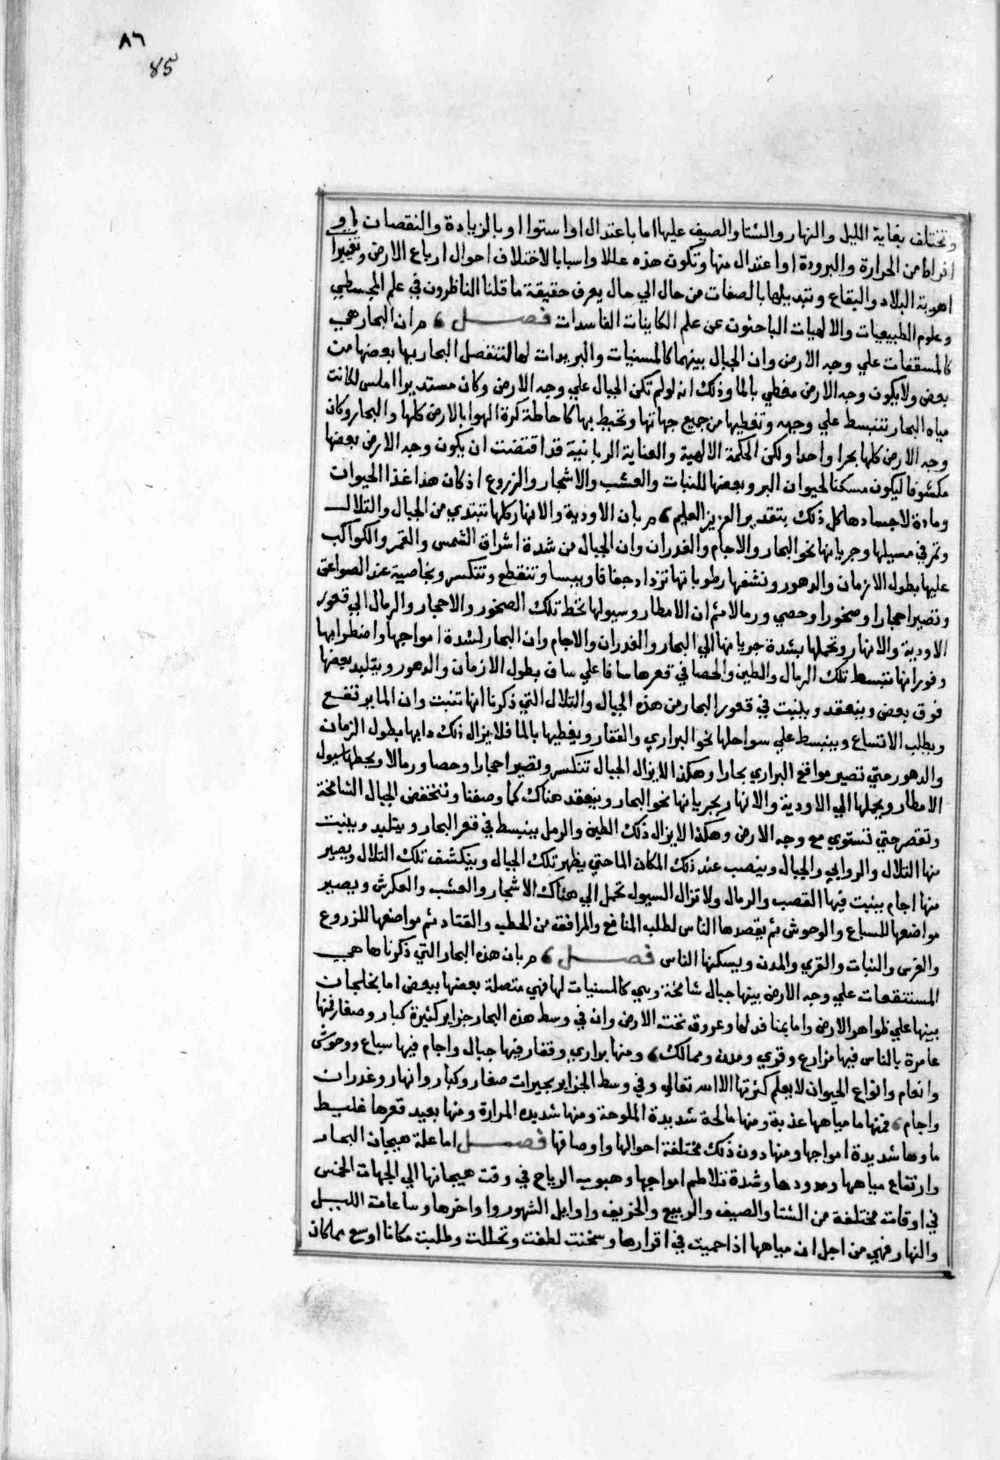 ٨٦
85
وتختلف بغاية الليل والنهار والشتا والصيف عليها اما باعتدال او استوا او بالزيادة والنقصان او
افراط من الحرارة والبرودة او اعتدال منها وتكون هذه عللا واسبابا لاختلاف احوال ارباع الارض وتغييرا
اهوية البلاد والبقاع وتبديلها بالصفات من حال الي حال يعرف حقيقة ما قلنا الناظرون في علم المجسطي
وعلوم الطبيعيات والالهيات الباحثون عن علم الكاينات الفاسدات فصل ان البحار هي
كالمستنقعات علي وجه الارض وان الجبال بينهما كالمسنيات والبريدات لها لتنفصل البحار بها بعضها من
بعض ولا يكون وجه الارض مغطي بالما وذلك انه لو لم تكن الجبال علي وجه الارض وكان مستديرا املس لكانت
مياه البحار تنبسط علي وجهه وتغطيها من جميع جهاتها وتحيط بها كاحاطة كرة الهوا بالارض كلها والبحار وكان
وجه الارض كلها بحرا واحدا ولكن الحكمة الالهية والعناية الربانية قد اقتضت ان يكون وجه الارض بعضها
مكشوفا ليكون مسكنا لحيوان البر وبعضها للنبات والعشب والاشجار والزروع اذ كان هذا غذا الحيوات
ومادة لاجسادها كل ذلك بتقدير العزيز العليم بان الاودية والانهار كلها تبتدي من الجبال والتلال
وتمر في مسيلها وجريانها نحو البحار والاجام والغدران وان الجبال من شدة اشراق الشمس والقمر والكواكب
عليها بطول الازمان والدهور ونشفها رطوباتها تزداد جفافا ويبسا وتنقطع وتتكسر وبخاصية عند الصواعق
وتصير احجارا وصخورا وحصي ورمالا ثم ان الامطار وسيولها تحط تلك الصخور والاحجار والرمال الي قعور
الاودية والانهار وتحملها بشدة جريانها الي البحار والغدران والاجام وان البحار لشدة امواجها واضطرابها
وفورانها تبسط تلك الرمال والطين والحصا في قعرها سافا علي ساف بطول الازمان والدهور ويتلبد بعضها
فوق بعض وينعقد وينبت في قعور البحار من هذه الجبال والتلال التي ذكرنا انها تنبت وان الما يرتفع
ويطلب الاتساع وينبسط علي سواحلها نحو البراري والقفار ويغطيها بالما فلا يزال ذلك دابها بطول الزمان
والدهور حتي تصير مواقع البراري بحارا وهكذا لا يزال الجبال تتكسر وتصير احجارا وحصا ورمالا ويحطها سيول
الامطار ويحملها الي الاودية والانهار بجريانها نحو البحار وينعقد هناك كما وصفنا وتنخفض الجبال الشامخة
وتقصر حتي تستوي مع وجه الارض وهكذا لا يزال ذلك الطين والرمل ينبسط في قعر البحار ويتلبد وينبت
منها التلال والروابي والجبال وينصب عند ذلك المكان الما حتي يظهر تلك الجبال وينكشف تلك التلال ويصير
منها اجام ينبت فيها القصب والرمال ولا تزال السيول تحمل الي هناك الاشجار والعشب والعكرش ويصير
مواضعها للسباع والوحوش ثم يقصدها الناس لطلب المنافع والمرافقة من الحطب والقتاد ثم مواضعها للزروع
والغرس والنبات والقري والمدن ويسكنها الناس فصل بان هذه البحار التي ذكرناها هي
المستنقعات علي وجه الارض بينها جبال شامخة وهي كالمسنيات لها فهي متصلة بعضها ببعض اما بخلجان
بينها علي ظواهر الارض واما بمنافذ لها وعروق تحت الارض وان في وسط هذه البحار جزاير كثيرة كبار وصغار فمنها
عامرة بالناس فيها مزارع وقري ومدن وممالك ومنها براري وقفار فيها جبال واجام فيها سباع ووحوش
وانعام وانواع الحيوان لا يعلم كثرتها الا الله تعالي وفي وسط الجزاير بحيرات صغار وكبار وانهار وغدران
واجام فمنها ما مياهها عذبة ومنها مالحة شديدة الملوحة ومنها شديدة المرارة ومنها بعيد قعرها غليظ
ماوها شديدة امواجها ومنها دون ذلك مختلفة احوالها واوصافها فصل اما علة هيجان البحار
وارتفاع مياهها ومدودها وشدة تلاطم امواجها وهبوب الرياح في وقت هيجانها الي الجهات الخمس
في اوقات مختلفة من الشتا والصيف والربيع والخريف واوايل الشهور واواخرها وساعات الليل
والنهار فهي من اجل ان مياهها اذا حميت في اقرارها وسخنت لطفت وتحللت وطلبت مكانا اوسع مما كان